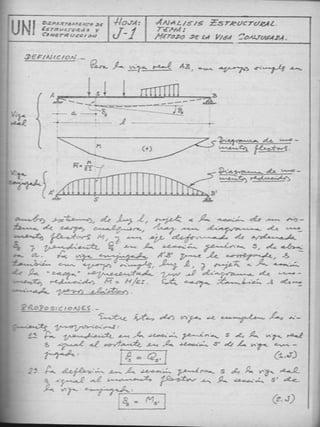 UNI
DEPARTAMENTO DE
ESTRUCTURAS Y
CONSTRUCCION
HOJA:
J-1
ANALISIS ESTRUCTURAL
TEMA:
METODO DE LA VIGA CONJUGADA.
DEFINICION.-
Para la viga real AB, con apoyos simples en
A
B
S
a
l
Viga
real
M
(+)
Diagrama de mo-
mentos flectores.
M̄ = M/EI
Viga
conjugada
Diagrama de mo-
mentos reducidos.
A'
S'
B'
ambos extremos, de luz l, sujeta a la acción de un sis-
tema de carga cualquiera, hay un diagrama de mo-
mentos flectores M, y un eje deformado de ordenada
y pendiente en la sección genérica S, de absci-
sa a. La viga conjugada A'B' que le corresponde, es
también con apoyos simples, luz l, y sujeta a la acción
de la "carga" representada por el diagrama de mo-
mentos reducidos, M̄ = M/EI. Esta carga también es deno-
minada pesos elásticos.
PROPOSICIONES.-
Entre estas dos vigas se cumplen las si-
guientes proposiciones:
1ª. La pendiente en la sección genérica S de la viga real
es igual al cortante en la sección S' de la viga con-
jugada:
(1.J)
2ª. La deflexión en la sección genérica S de la viga real
es igual al momento flector en la sección S' de
la viga conjugada:
(2.J)